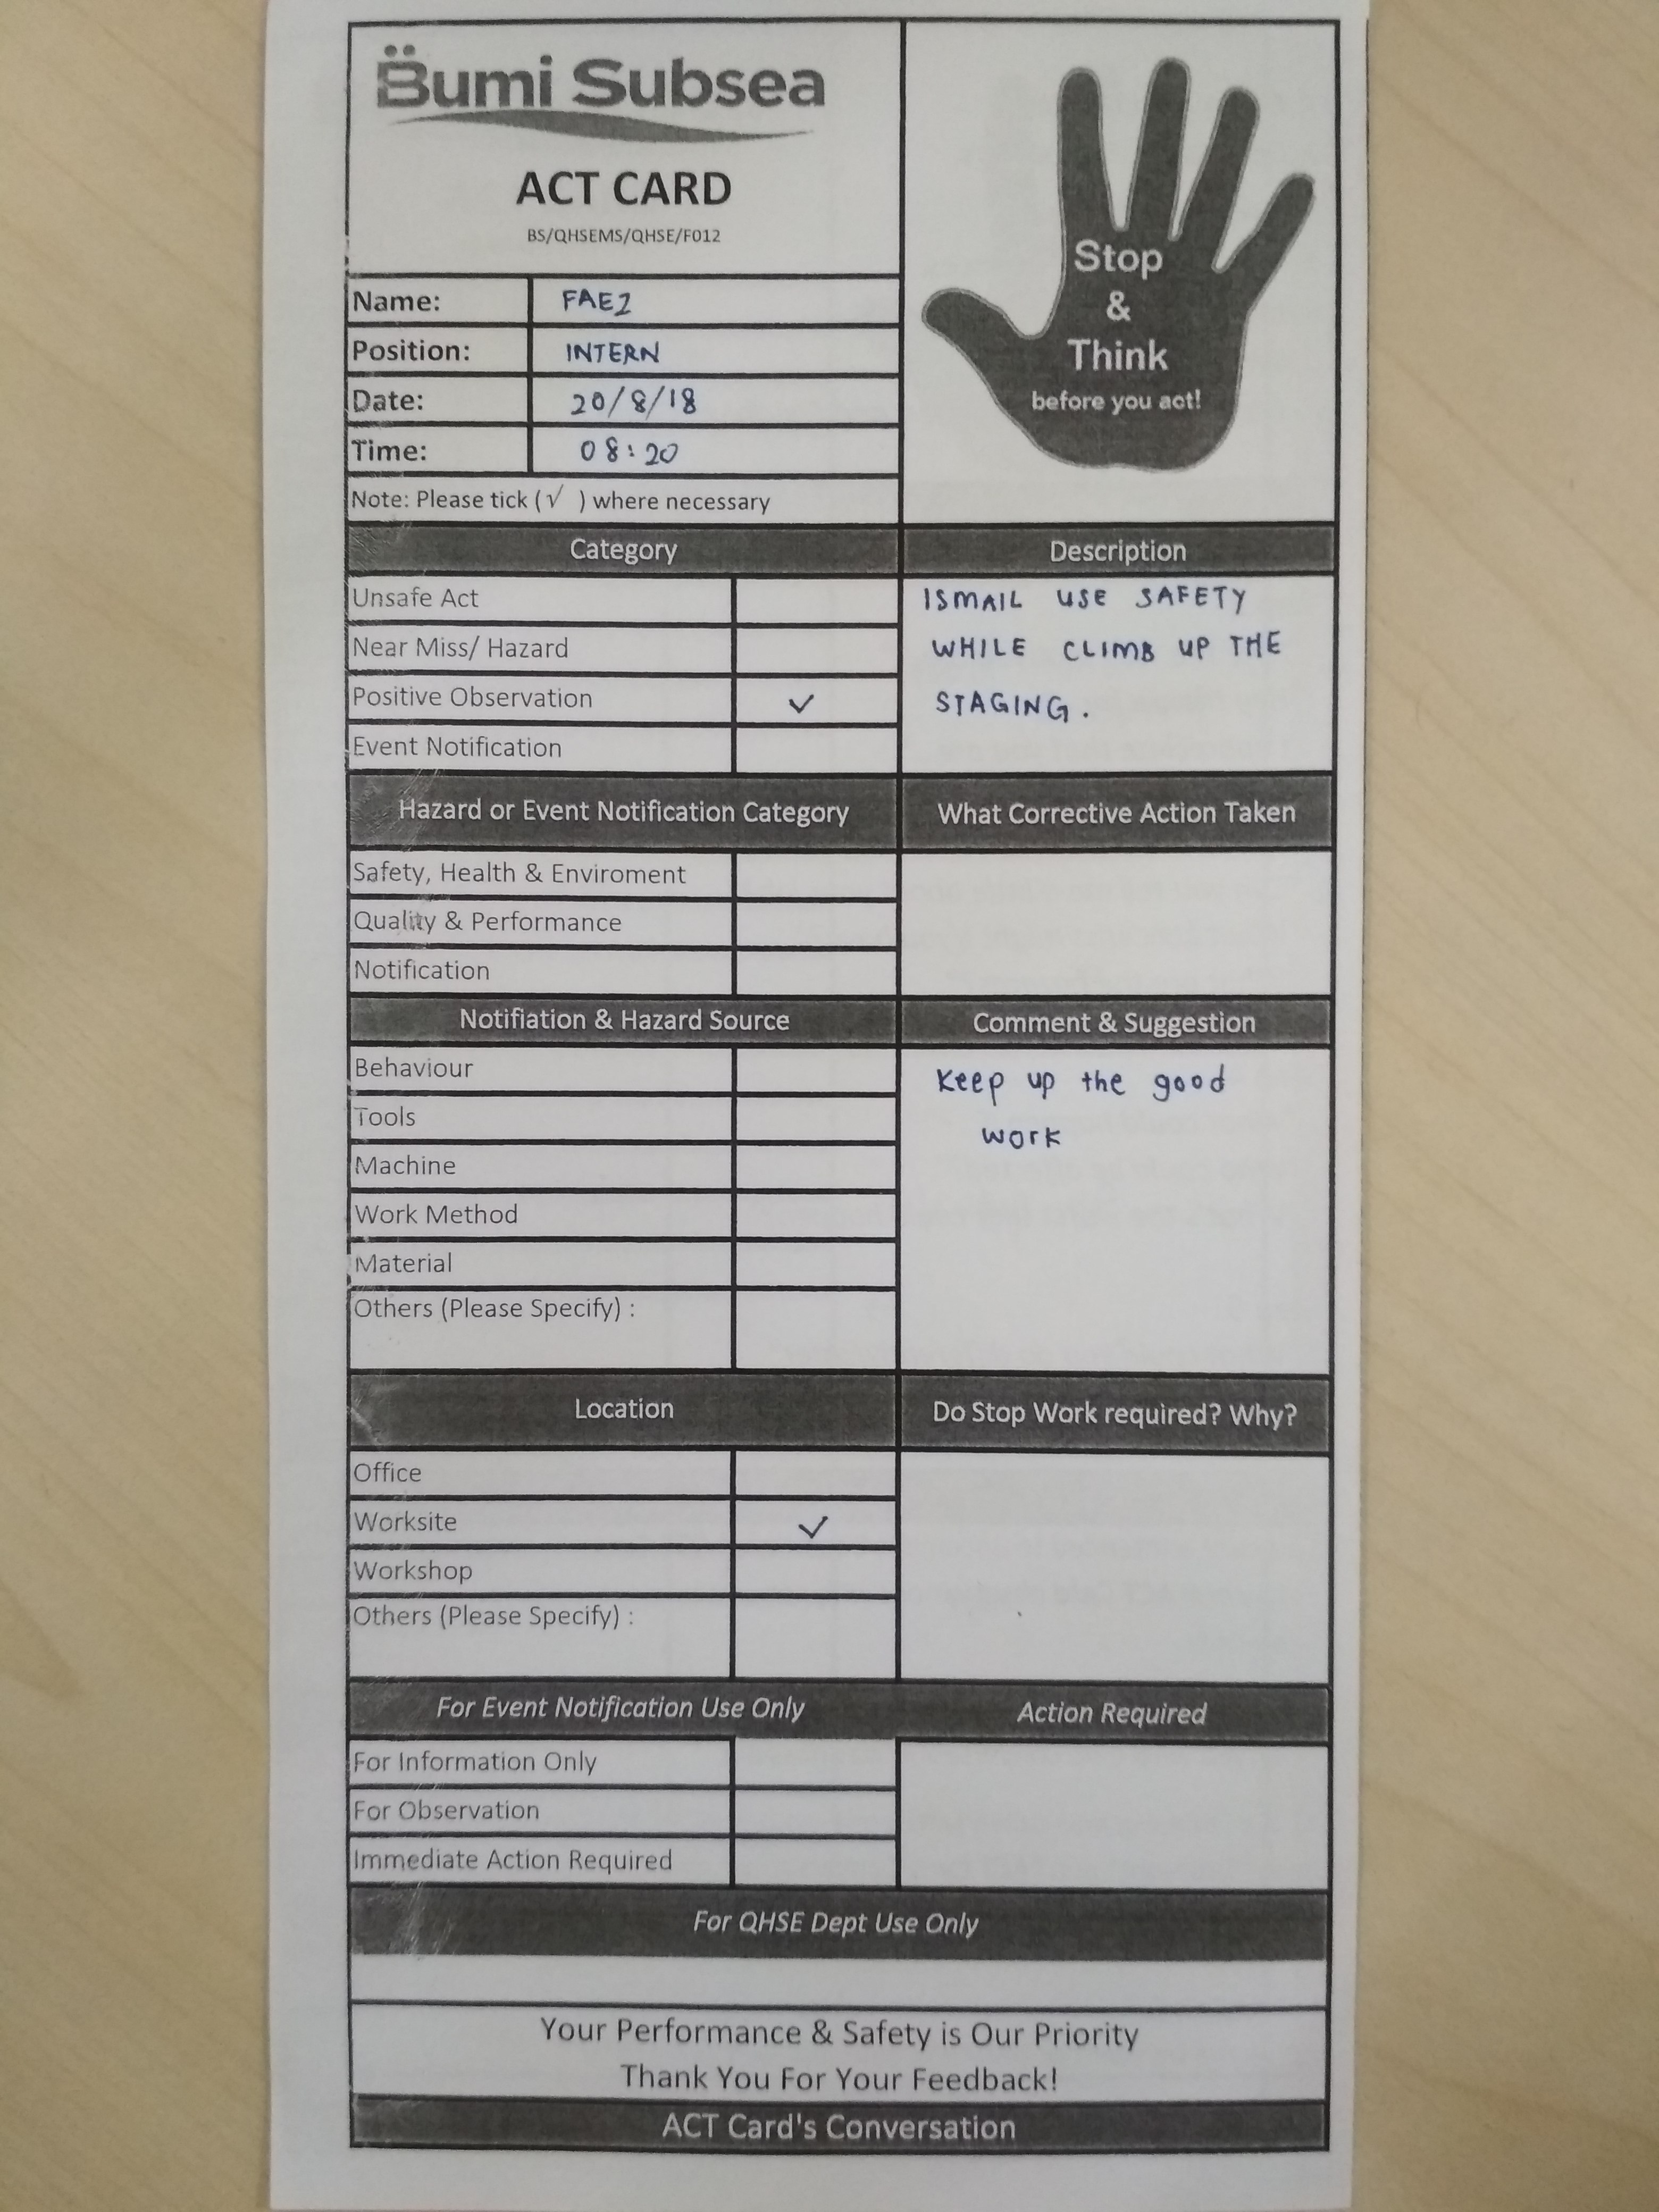 Bumi Subsea
ACT CARD
BS/QHSEMS/QHSE/F012
Stop
&
Think
before you act!
Name: FAEZ
Position: INTERN
Date: 20/8/18
Time: 08:20
Note: Please tick (√ ) where necessary
Category
Unsafe Act
Near Miss/ Hazard
Positive Observation ✓
Event Notification
Description
ISMAIL USE SAFETY
WHILE CLIMB UP THE
STAGING.
Hazard or Event Notification Category
Safety, Health & Enviroment
Quality & Performance
Notification
What Corrective Action Taken
Notifiation & Hazard Source
Behaviour
Tools
Machine
Work Method
Material
Others (Please Specify) :
Comment & Suggestion
Keep up the good
work
Location
Office
Worksite ✓
Workshop
Others (Please Specify) :
Do Stop Work required? Why?
For Event Notification Use Only
For Information Only
For Observation
Immediate Action Required
Action Required
For QHSE Dept Use Only
Your Performance & Safety is Our Priority
Thank You For Your Feedback!
ACT Card's Conversation